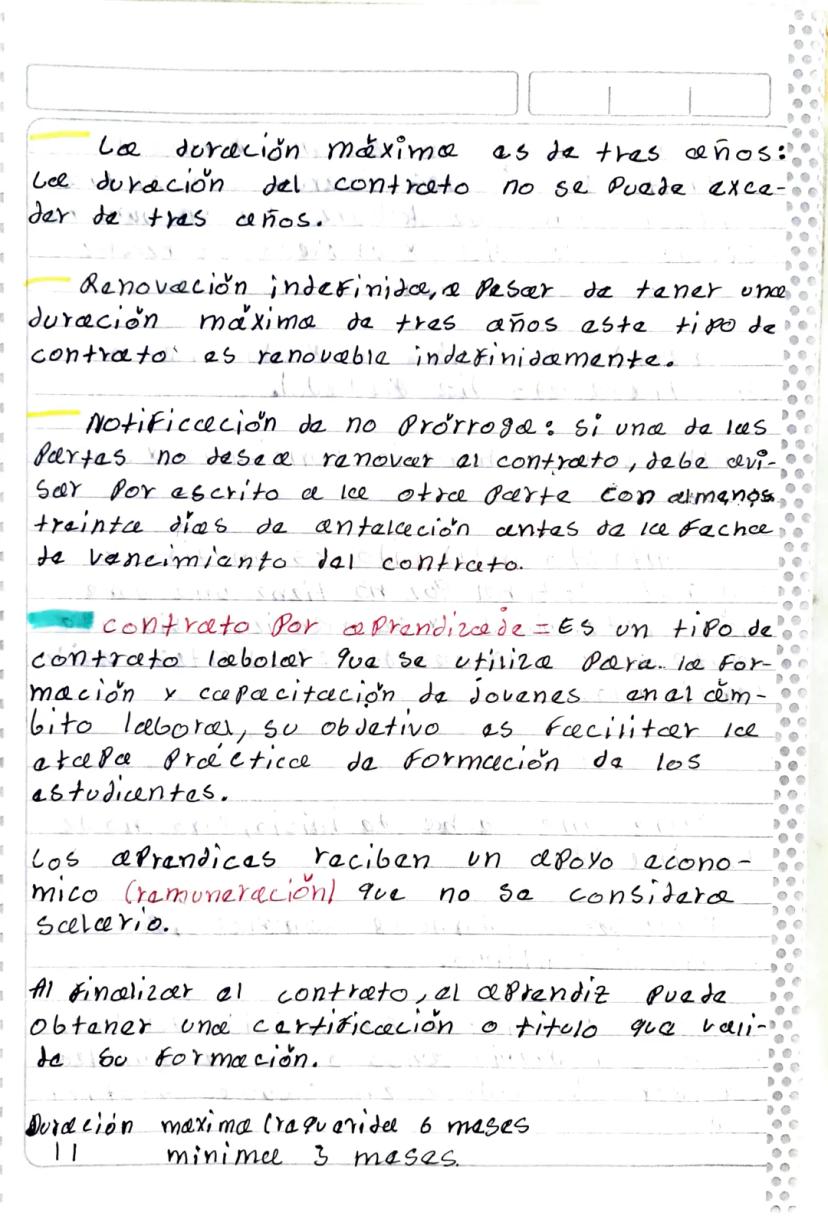 La duración máxima es de tres años:
La duración del contrato no se puede exce-
der de tres años.
Renovación indefinida, a pesar de tener una
duración máxima de tres años este tipo de
contrato es renovable indefinidamente.
Notificación de no Prórroga: Si una de las
Partes no desea renovar el contrato, debe avi-
sar por escrito a la otra parte con almenos
treinta días de antelación antes de la fecha
de vencimiento del contrato.
contrato Por aprendizade = Es un tipo de
contrato labolar que se utiliza para la for-
mación y capacitación de jovenes en el ám-
bito laboral, su objetivo es facilitar la
etapa práctica de formación de los
estudiantes.
Los aprendices reciben un apoyo econo-
mico (remuneración) que no se considera
salario.
Al finalizar el contrato, el aprendiz puede
obtener una certificación o titulo que vali-
de su formación.
Duración maxima (requerida 6 meses
11 minima 3 meses.